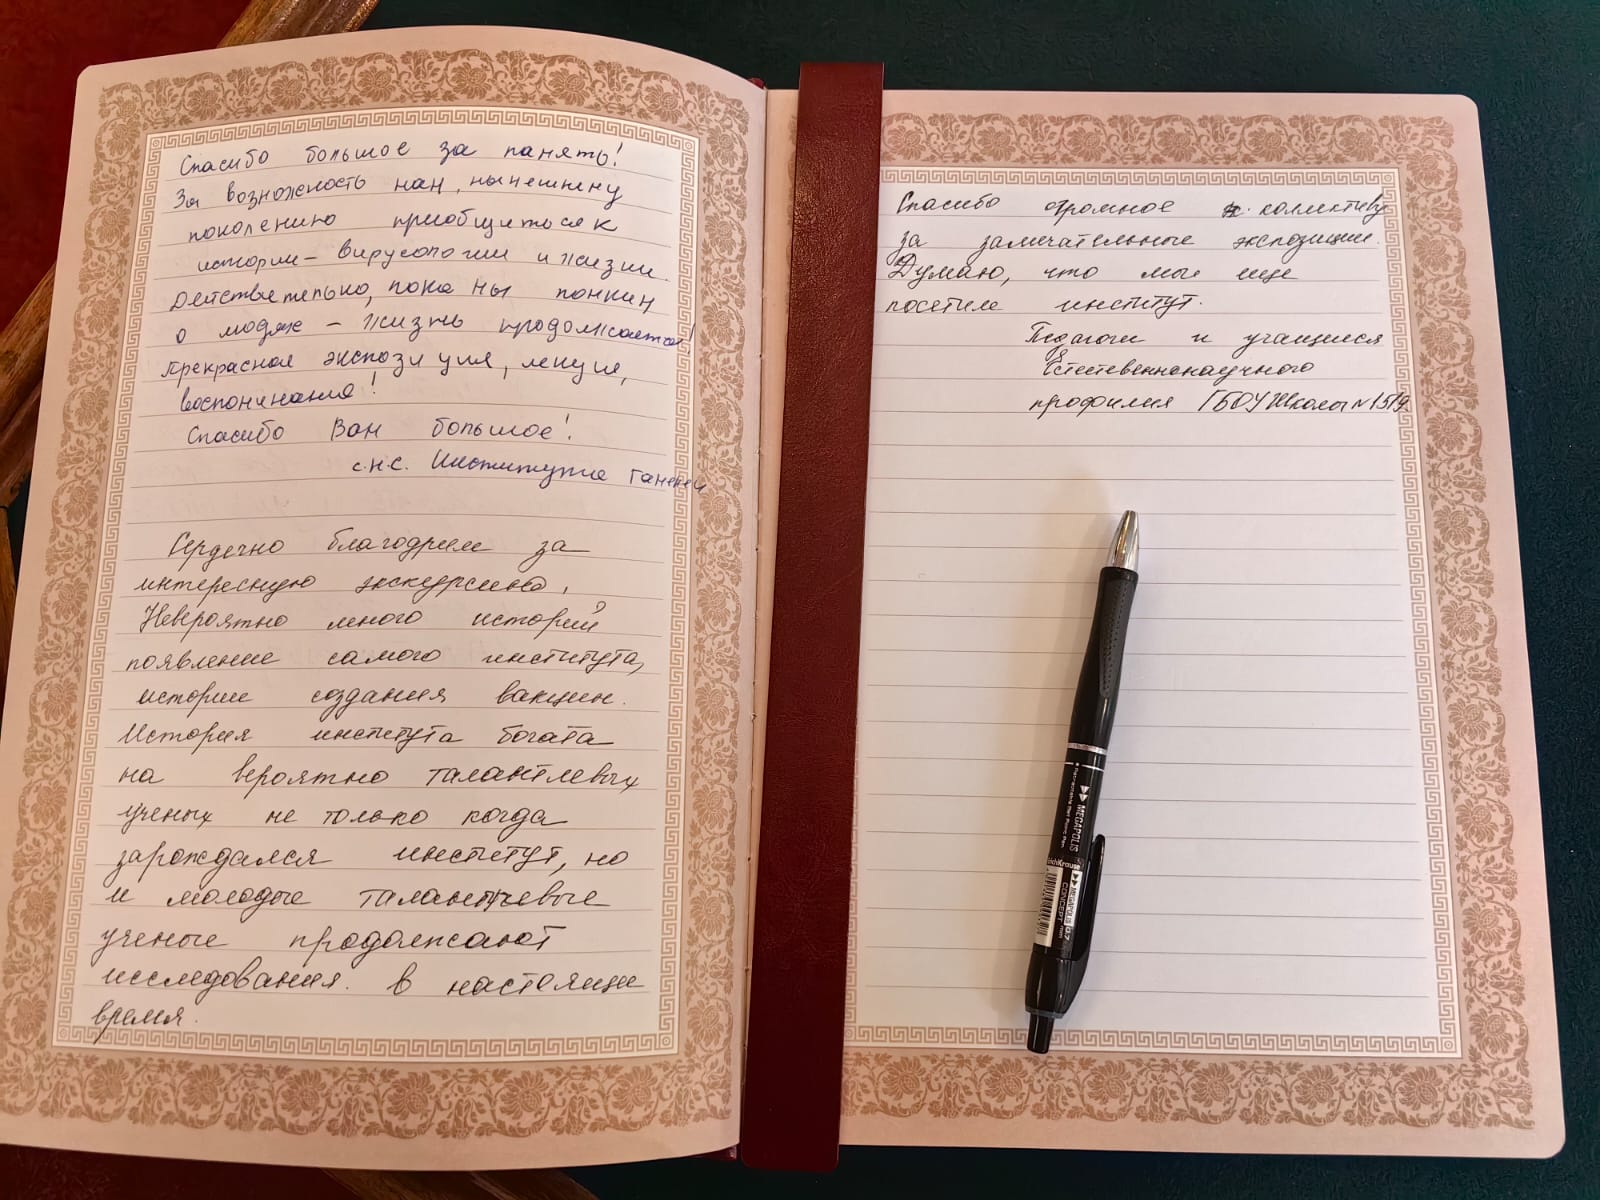 Спасибо большое за память!
За возможность нам, нынешнему
поколению приобщиться к
истории – вирусологии и жизни.
Действительно, пока мы помним
о людях – жизнь продолжается!
Прекрасная экспозиция, лекция,
воспоминания!
Спасибо Вам большое!
с.н.с. Института
Сердечно благодрим за
интересную экскурсию.
Невероятно много историй
появление самого института,
истории создания вакцин.
История института богата
на вероятно талантлевых
ученых не только когда
зарождался институт, но
и молодые талантлевые
ученые продолжают
исследования. в настоящие
время.
Спасибо огромное коллективу
за замечательные экспозиции.
Думаю, что мы еще
посетим институт.
Педагоги и учащиеся
Естественнонаучного
профилия ГБОУ Школы №1519.
MEGAPOLIS
ErichKrause
MEGAPOLIS
CONCEPT
0.7